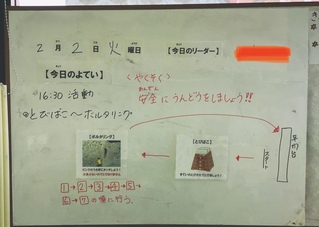 2月2日火曜日 【今日のリーダー】
【今日のよてい】
16:30 活動
@とびばこ〜ボルタリング
〈やくそく〉
あんぜん
安全にうんどうをしましょう!!
【ボルタリング】
【とびばこ】
スタート
平均台
1→2→3→4→5→
6→7の順に行う。